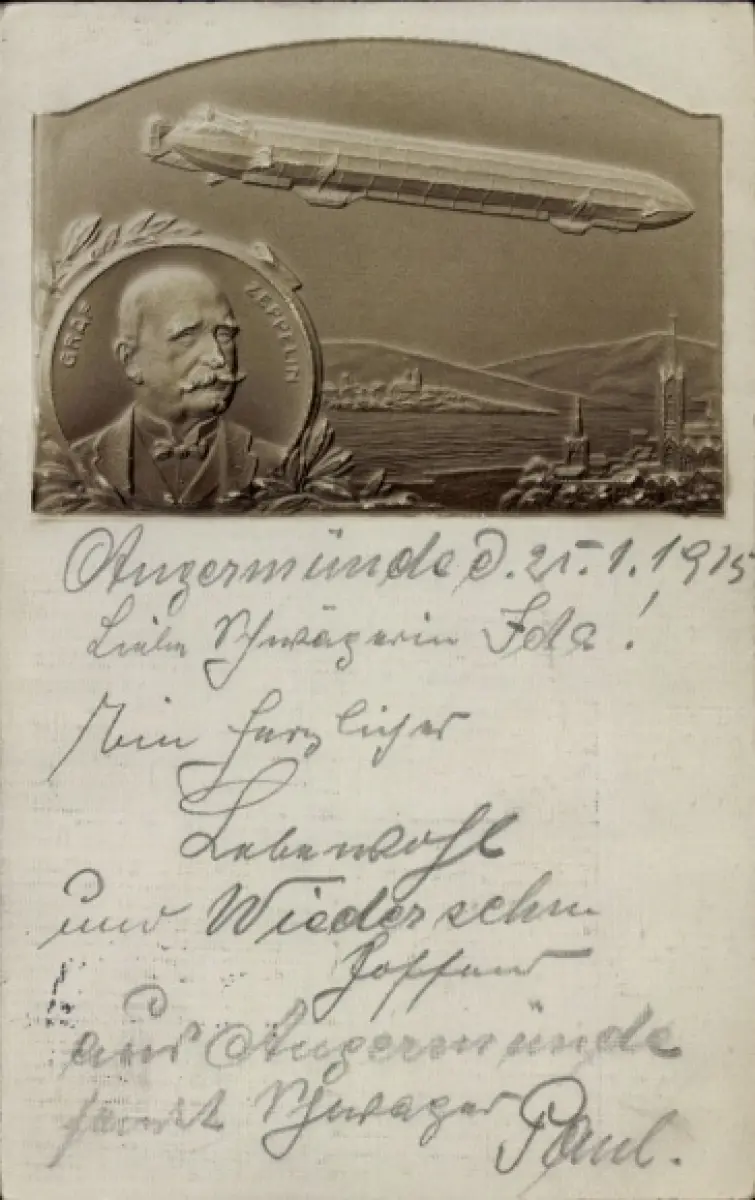 GRAF ZEPPELIN
Angermünde d. 25.1.1915
Liebe Schwägerin Ida!
Ein herzlicher
Lebewohl
und Wiedersehn
hoffend
aus Angermünde
Schwager
Paul.